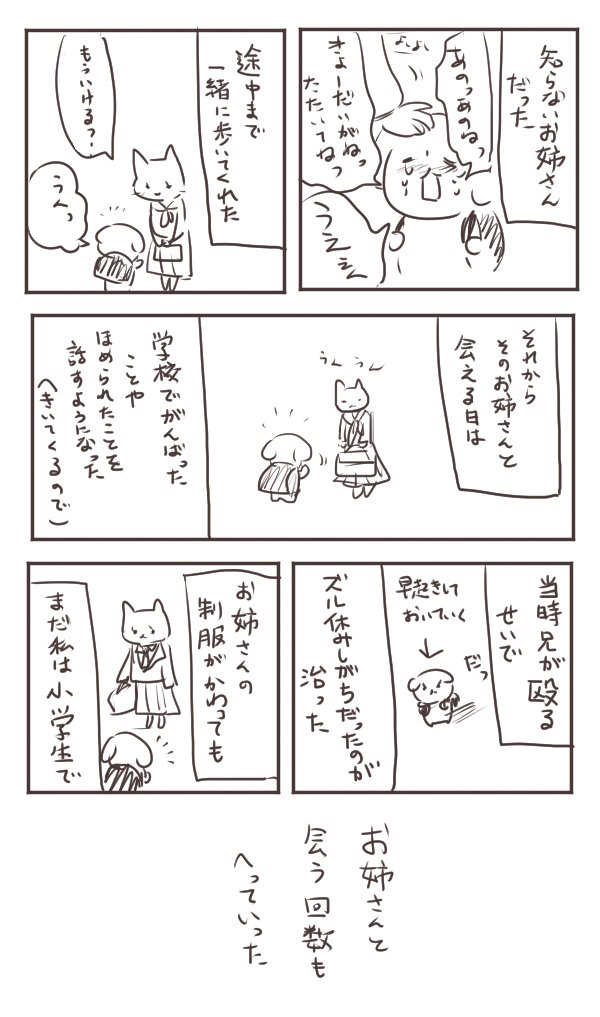 知らないお姉さん
だった
よしよし
あのっあのねっ
きょーだいがねっ
たたいてねっ
うえぇん
途中まで
一緒に歩いてくれた
もういけるっ?
うんっ
それから
そのお姉さんと
会える日は
うんうん
学校でがんばった
ことや
ほめられたことを
話すようになった
(へきいてくるので)
当時兄が殴る
せいで
だっ
早起きして
おいていく
ズル休みしがちだったのが
治った
お姉さんの
制服がかわっても
まだ私は小学生で
お姉さんと
会う回数も
へっていった